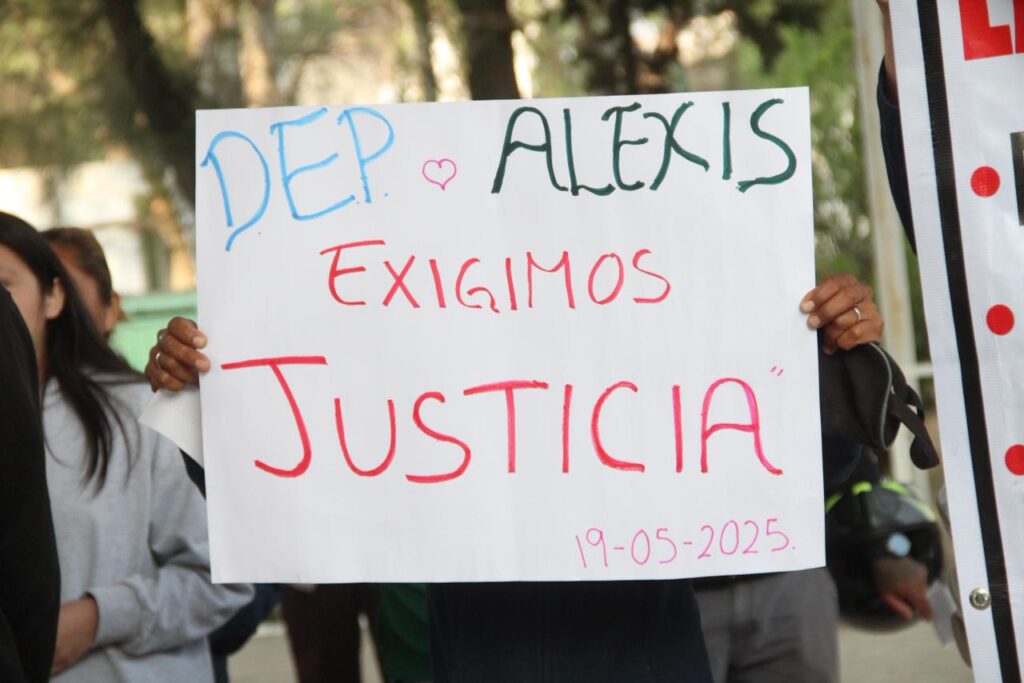 D.E.P. ALEXIS
EXIGIMOS
JUSTICIA"
19-05-2025.